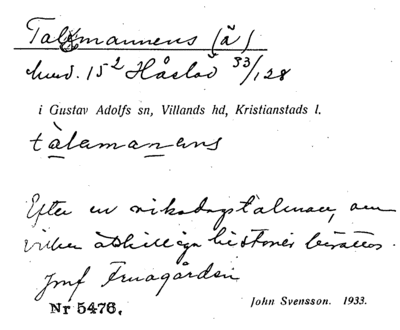 Talemannens (å)
hmd. 15² Håslöv 33/128
i Gustav Adolfs sn, Villands hd, Kristianstads l.
tàlamanans
Efter en riksdagstalman, om
vilken åtskilliga historier berättas.
Jmf Fruagården
Nr 5476. John Svensson. 1933.